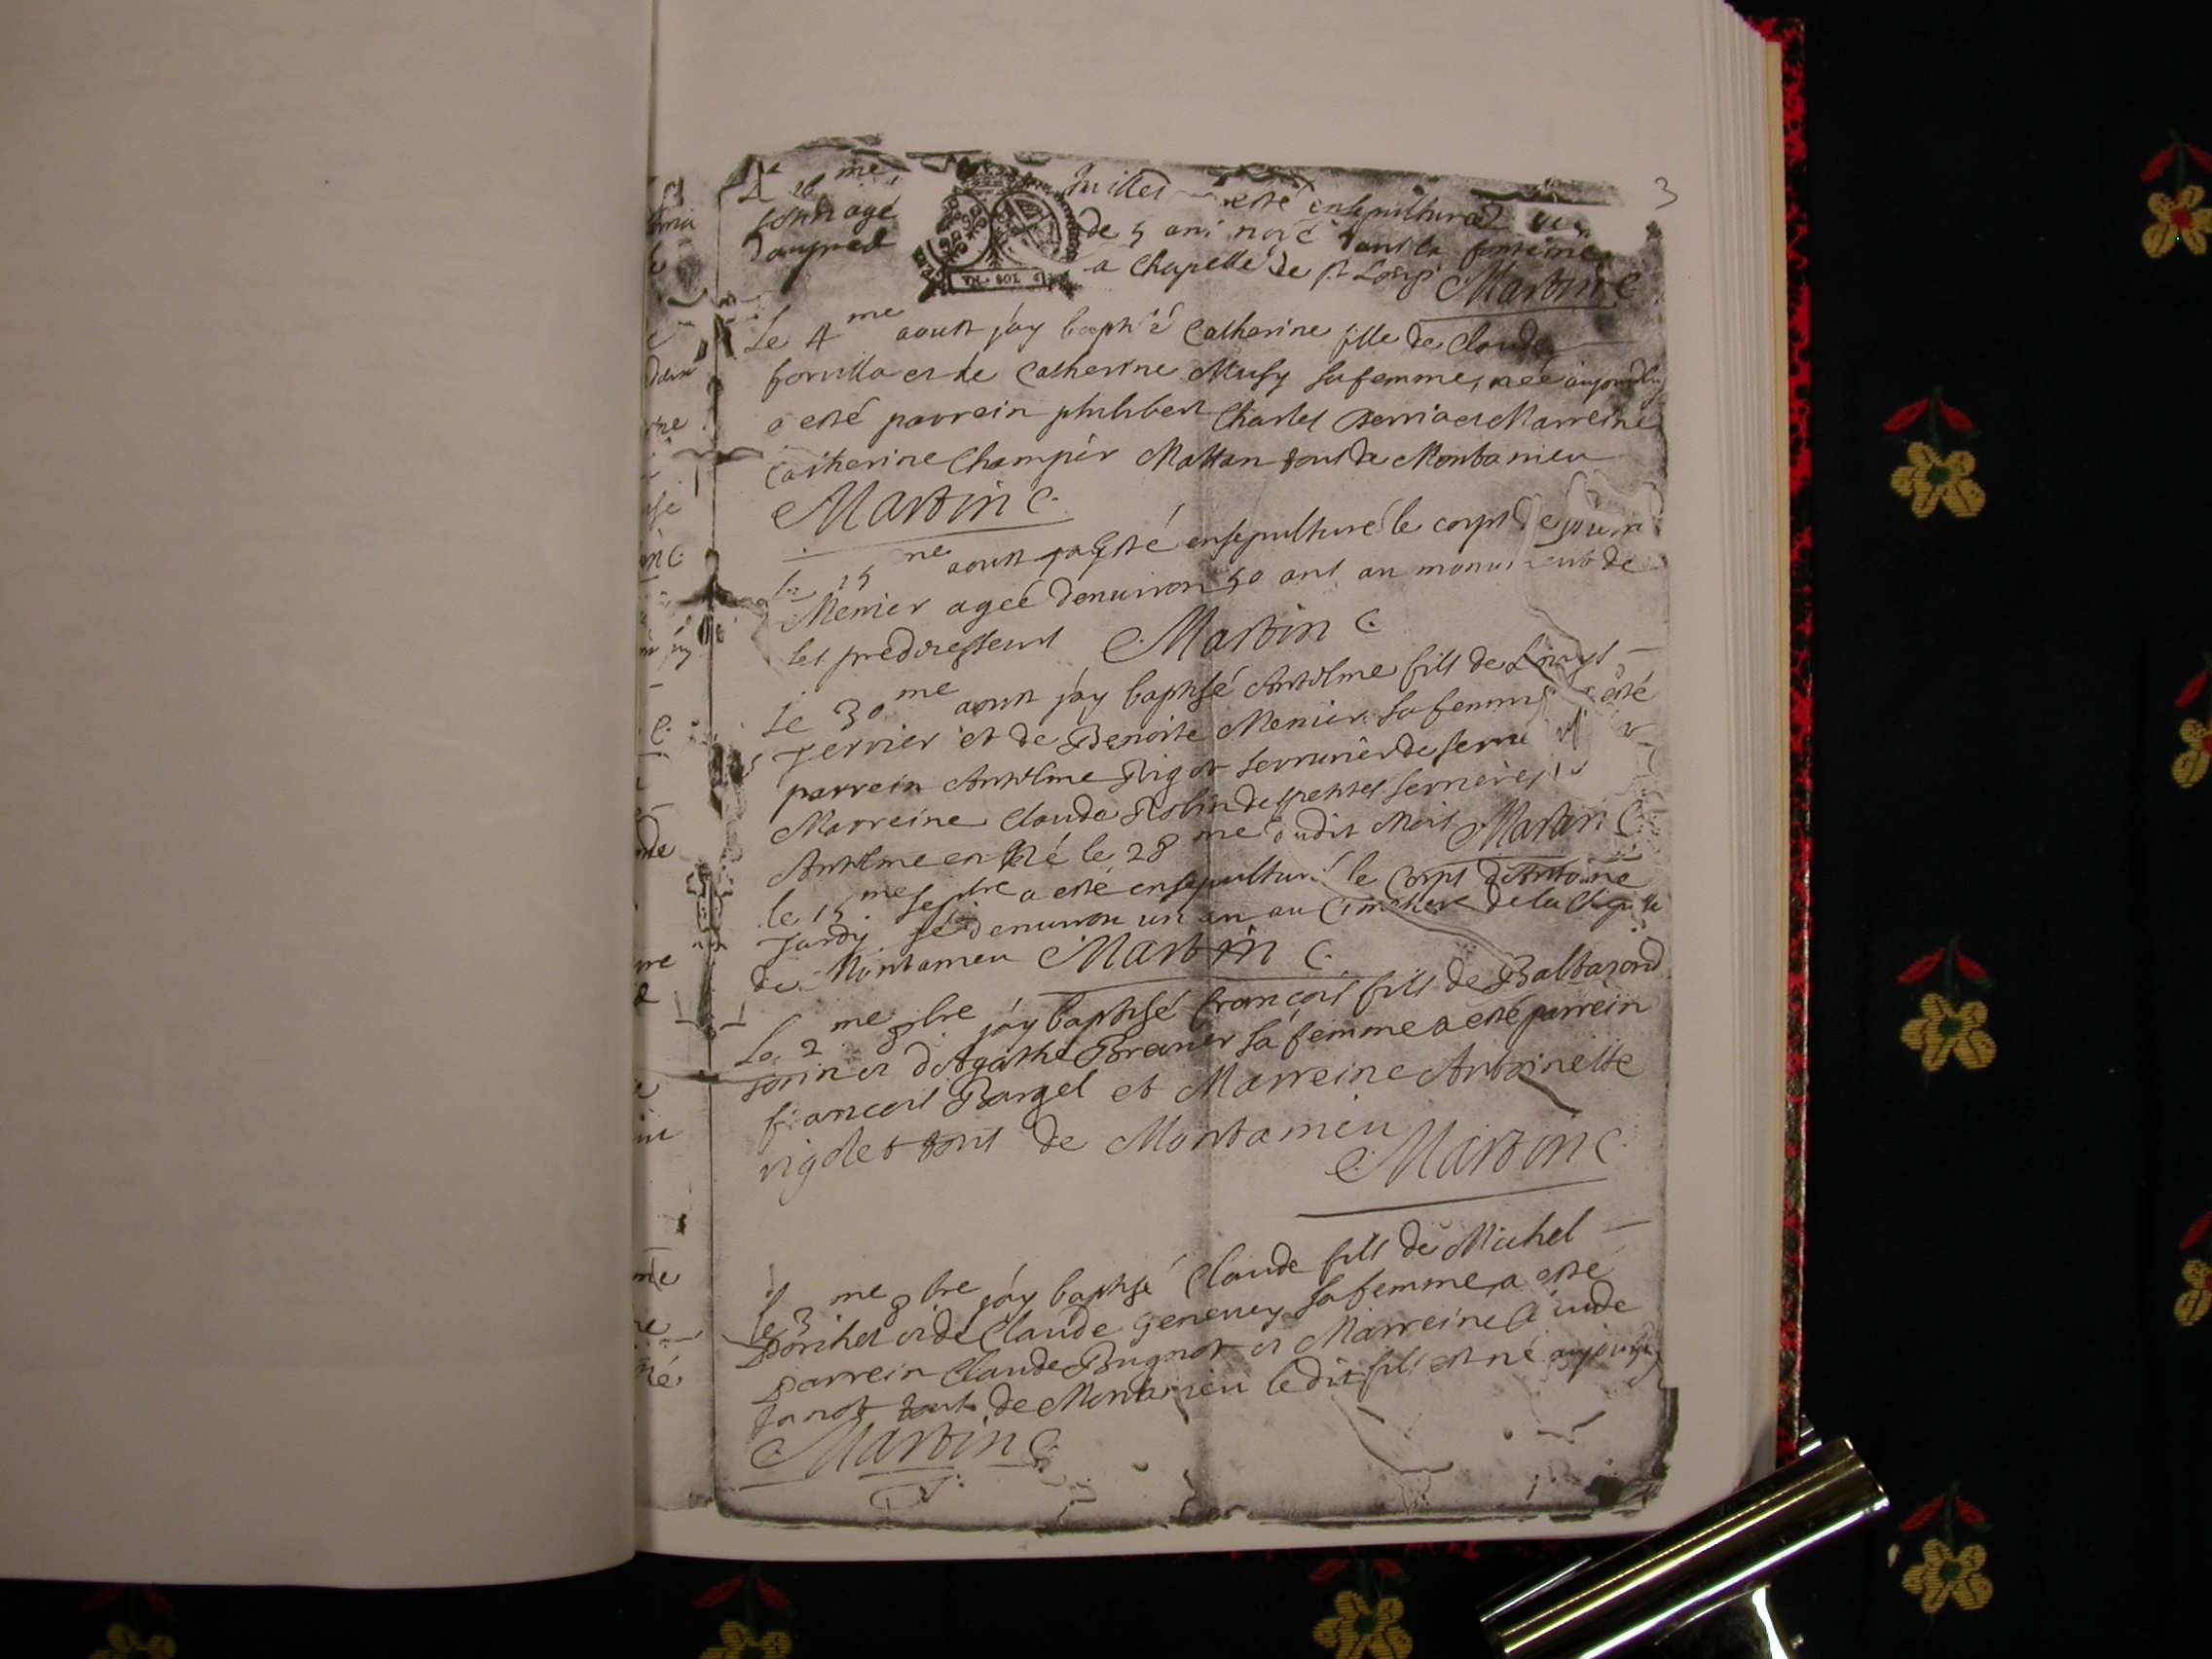 3
Le 26 me Juillet esté ensepulturé
agé de 5 ans noyé dans la fontaine
a Chapelle de st Loup Martin C
SOL
Le 4 me aoust jay baptisé Catherine fille de Claude
et de Catherine Musy sa femme, née aujourdhuy
a esté parrein philibert Charles Perria et Marreine
Catherine Champier Mattan tous de Montanieu
Martin C.
Le 25 me aoust esté ensepulturé le corps de
Menier agée denuiron 50 ans au de
ses predecesseurs Martin C.
Le 30 me aoust jay baptisé Antelme fils de
Jervier et de Benoite Menier sa femme a esté
parrein Antelme Rigot serrurier de
Marreine Claude Robin des petites serrieres
Antelme est né le 28 me dudit Mois Martin C.
le 15 me sepbre a esté ensepulturé le corps dAntoine
Jardy agé denuiron un an au Cimetiere de la Chapelle
de Montanieu Martin C.
Le 2 me 8bre jay baptisé francois fils de Baltazard
et dAgathe sa femme a esté parrein
francois Bargel et Marreine Antoinette
rigolet tous de Montanieu
Martin C.
le 3 me 8bre jay baptisé Claude fils de Michel
et de Claude Geneuey sa femme, a esté
parrein Claude Bugnot et Marreine Claude
Janot tous de Montanieu ledit fils est né aujourdhuy
Martin C.